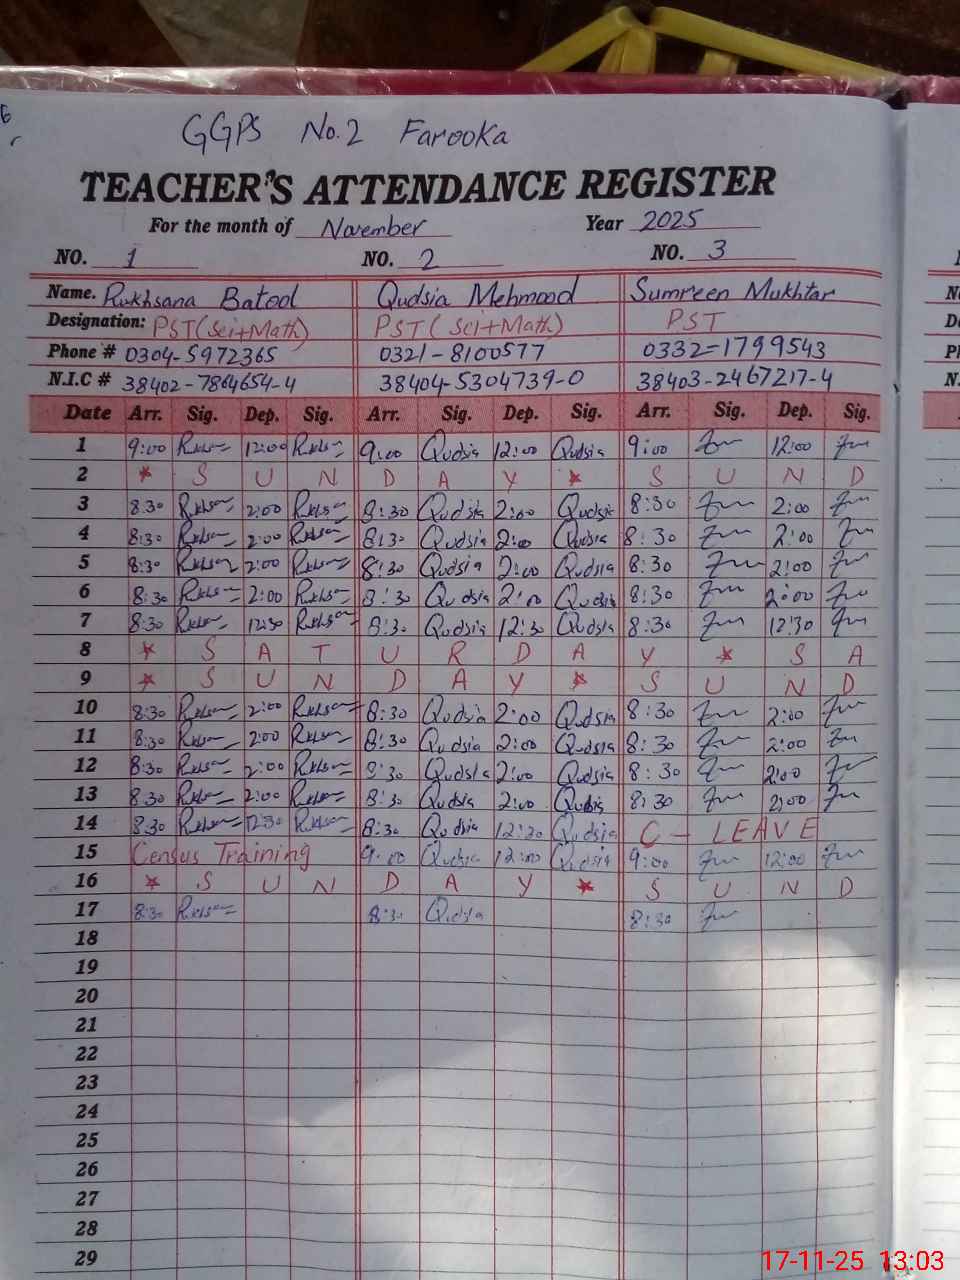 GGPS No.2 Farooka
TEACHER'S ATTENDANCE REGISTER
For the month of November Year 2025
NO. 1 NO. 2 NO. 3
Name. Rukhsana Batool Qudsia Mehmood Sumreen Mukhtar
Designation: PST(Sci+Math) PST(Sci+Math) PST
Phone # 0304-5972365 0321-8100577 0332=1799543
N.I.C # 38402-7864654-4 38404-5304739-0 38403-2467217-4
Date Arr. Sig. Dep. Sig. Arr. Sig. Dep. Sig. Arr. Sig. Dep. Sig.
1 9:00 12:00 9:00 Qudsia 12:00 Qudsia 9:00 12:00
2 * S U N D A Y * S U N D
3 8:30 2:00 8:30 Qudsia 2:00 Qudsia 8:30 2:00
4 8:30 2:00 8:30 Qudsia 2:00 Qudsia 8:30 2:00
5 8:30 2:00 8:30 Qudsia 2:00 Qudsia 8:30 2:00
6 8:30 2:00 8:30 Qudsia 2:00 Qudsia 8:30 2:00
7 8:30 12:30 8:30 Qudsia 12:30 Qudsia 8:30 12:30
8 * S A T U R D A Y * S A
9 * S U N D A Y * S U N D
10 8:30 2:00 8:30 Qudsia 2:00 Qudsia 8:30 2:00
11 8:30 2:00 8:30 Qudsia 2:00 Qudsia 8:30 2:00
12 8:30 2:00 8:30 Qudsia 2:00 Qudsia 8:30 2:00
13 8:30 2:00 8:30 Qudsia 2:00 Qudsia 8:30 2:00
14 8:30 12:30 8:30 Qudsia 12:30 Qudsia C - LEAVE
15 Census Training 9:00 Qudsia 12:00 Qudsia 9:00 12:00
16 * S U N D A Y * S U N D
17 8:30 8:30 Qudsia 8:30
18
19
20
21
22
23
24
25
26
27
28
29
17-11-25 13:03